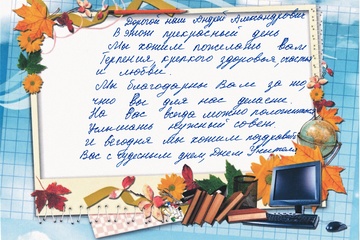 Дорогой наш Андрей Александрович
В этот прекрасный день
Мы хотим пожелать Вам
Терпения, крепкого здоровья, счастья
и любви.
Мы благодарны Вам за то,
что вы для нас делаете.
На Вас всегда можно положиться
Услышать нужный совет
и сегодня мы хотим поздравить
Вас с чудесным днем, Днем Учителя